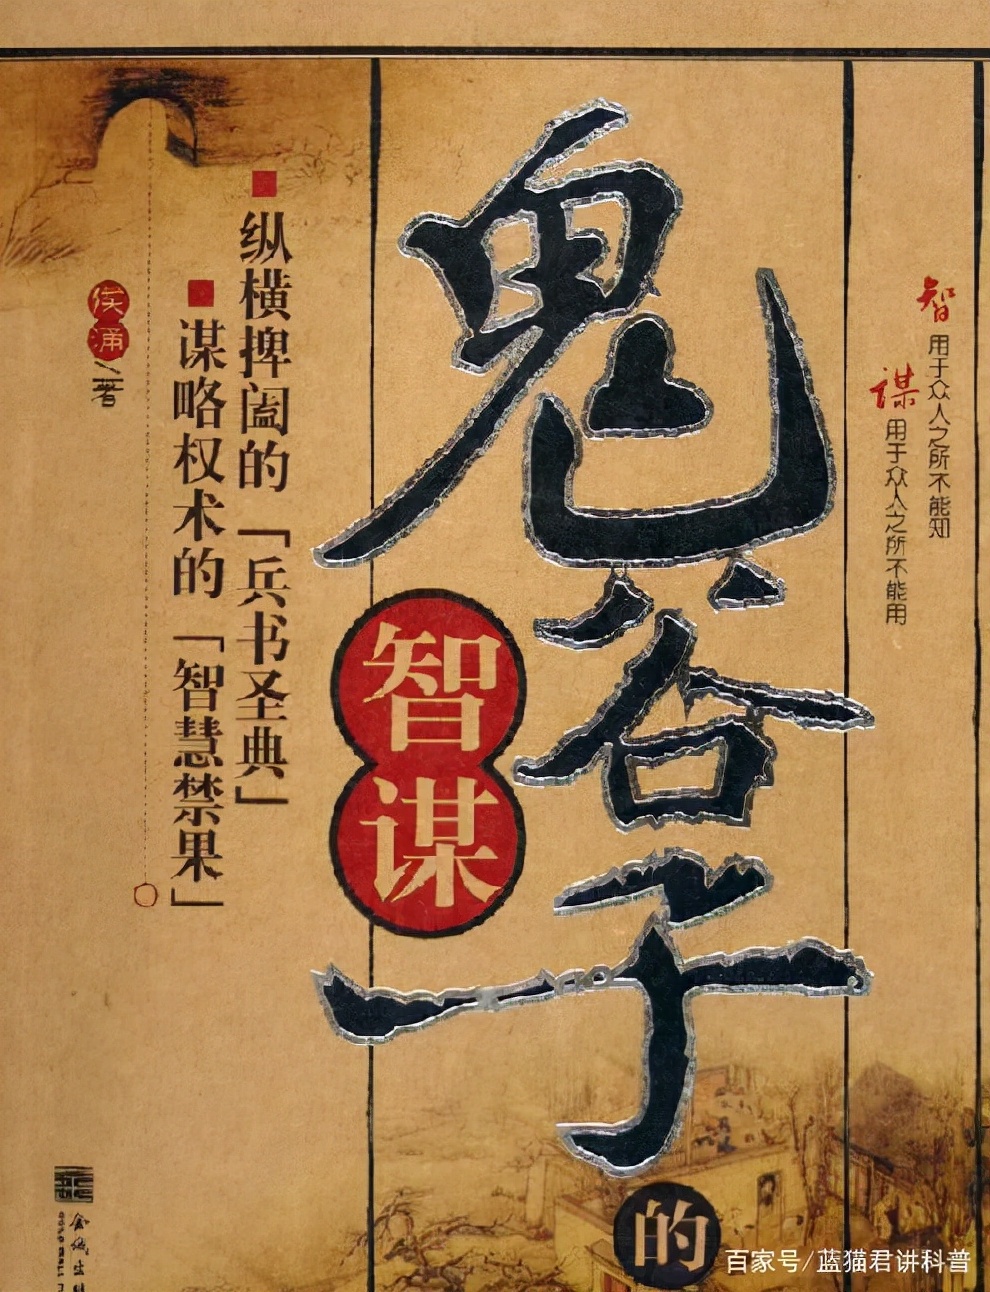 智
用于众人之所不能知
谋
用于众人之所不能用
鬼谷子
的
智谋
■纵横捭阖的「兵书圣典」
■谋略权术的「智慧禁果」
侯涌/著
百家号/蓝猫君讲科普